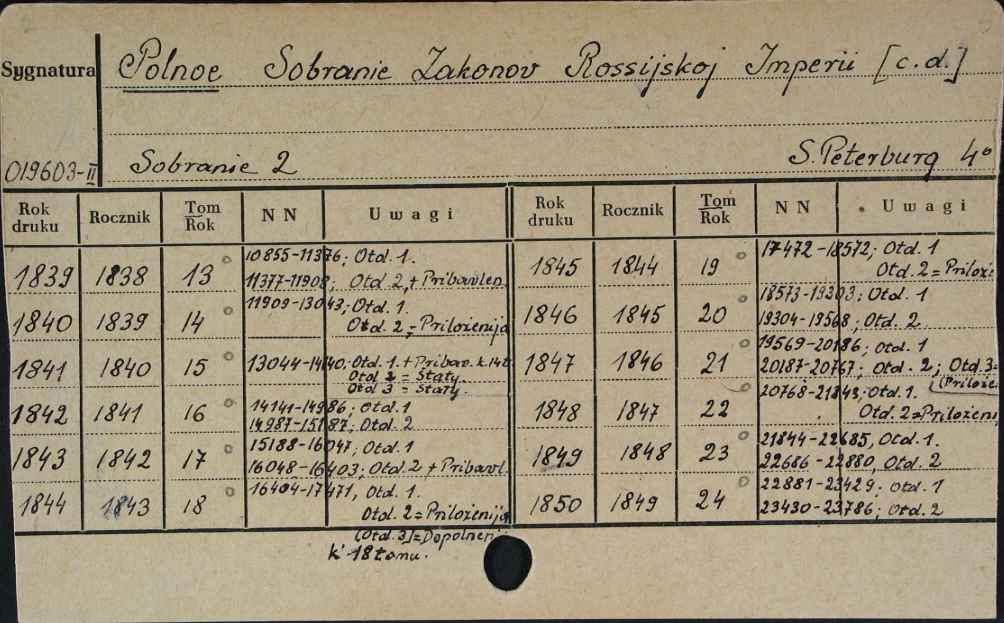 Sygnatura
Polnoe Sobranie Zakonov Rossijskoj Imperii [c.d.]
019603-II
Sobranie 2 S. Peterburg 4°
Rok druku Rocznik Tom/Rok NN Uwagi
1839 1838 13° 10855-11376; Otd. 1.
11377-11908; Otd. 2, + Pribavlen
1840 1839 14° 11909-13043; Otd. 1.
Otd. 2 = Priloženija
1841 1840 15° 13044-14140; Otd. 1. + Pribav. k.14t.
Otd 2 = Štaty.
Otd 3 = Štaty.
1842 1841 16° 14141-14986; Otd. 1
14987-15187; Otd. 2
1843 1842 17° 15188-16047; Otd. 1
16048-16403; Otd. 2 + Pribavl.
1844 1843 18° 16404-17471, Otd. 1.
Otd. 2 = Priloženija
[Otd. 3] = Dopolneni
k' 18 tomu.
Rok druku Rocznik Tom/Rok NN Uwagi
1845 1844 19° 17472-18572; Otd. 1
Otd. 2 = Prilože
1846 1845 20° 18573-19303; Otd. 1
19304-19568; Otd. 2
1847 1846 21° 19569-20186; Otd. 1
20187-20767; Otd. 2; Otd. 3=
(Prilože
1848 1847 22° 20768-21843; Otd. 1.
Otd. 2 = Priloženi
1849 1848 23° 21844-22685, Otd. 1.
22686-22880, Otd. 2
1850 1849 24° 22881-23429; Otd. 1
23430-23786; Otd. 2